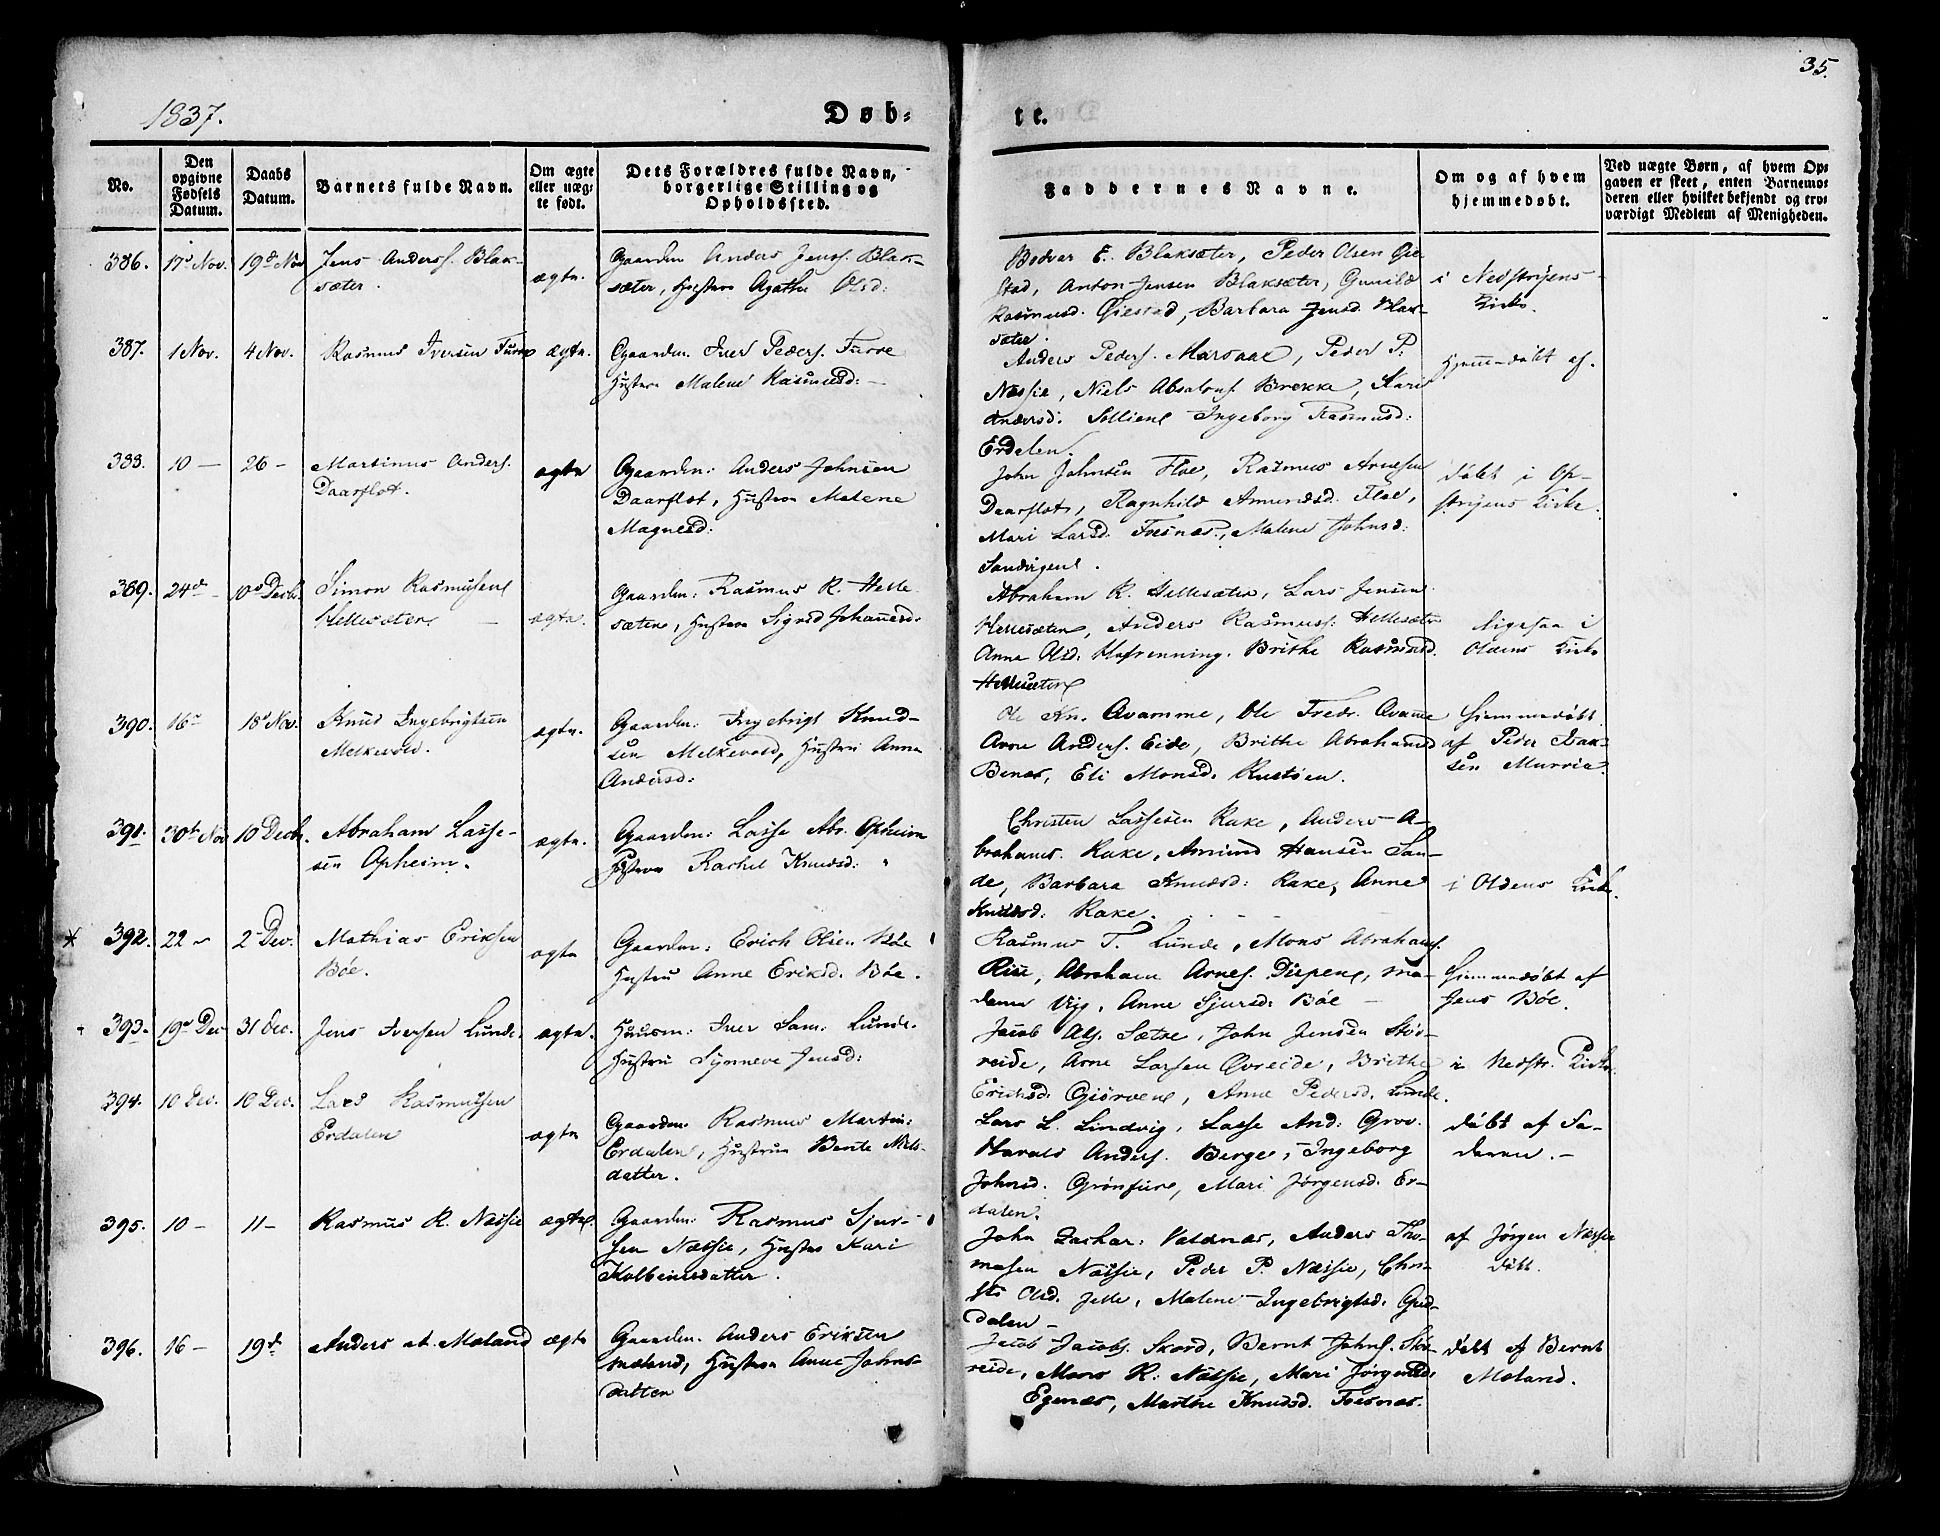 35.
1837.
Døb-
te.
No.
Den opgivne Fødsels Datum.
Daabs Datum.
Barnets fulde Navn.
Om ægte eller uægte født.
Dets Forældres fulde Navn, borgerlige Stilling og Opholdssted.
Faddernes Navne.
Om og af hvem hjemmedøbt.
Ved uægte Børn, af hvem Opgaven er skeet, enten Barnemoderen eller hvilket bekjendt og troværdigt Medlem af Menigheden.
386. 17d Nov. 19d Nov Jens Anders. Blak-
sæter.
ægte.
Gaarden Anders Jens. Blak-
sæter, Hustru Agathe Olsd:
Bodvar E. Blaksæter, Peder Olsen Gie-
stad, Anton Jensen Blaksæter, Gunild
Rasmusd. Giestad, Barbara Jensd. Blak-
sæter.
i Nedstryens
Kirke.
387. 1 Nov. 4 Nov. Rasmus Iversen Furre ægte.
Gaarden. Iver Peders. Furre
Hustru Malene Rasmusd: —
Anders Peders. Marsaae, Peder P.
Næssie, Niels Absalons. Brekke, Kari
Andersd: Ingeborg Rasmusd:
Erdalen.
Hjemmedøbt af.
388. 10 — 26 — Martinus Anders.
Daarflot.
ægte
Gaarden: Anders Johnsen
Daarflot, Hustru Malene
Magnesd:
John Johnsen Floe, Rasmus Arnesen
Daarflot, Ragnhild Amundsd: Floe,
Mari Larsd. Foesnæs, Malene Johnsd:
døbt i Op-
stryens Kirke.
389. 24d — 10d Decbr. Simon Rasmusen
Hellesæter —
ægte.
Gaarden: Rasmus R. Helle
sæter, Hustru Sigrid Johannesd.
Abraham R. Hellesæter, Lars Jensen
Hellesæter, Anders Rasmuss: Hellesæter
Anna Olsd. Hafrenning. Brithe Rasmusd.
Hellesæter
ligesaa i
Oldens Kirke
390. 16 — 18d Nov. Knud Ingebrigtsen
Melkevold.
ægte.
Gaarden: Ingebrigt Knud-
sen Melkevold, Hustru Anna
Andersd:
Ole Kn. Qvamme, Ole Fredr. Qvamme
Arne Anders. Eide, Brithe Abrahamsd
Benæs, Eli Monsd. Rustøen.
Hiemmedøbt
af Peder Isak-
sen Murrie.
391. 30te Nov 10 Decbr. Abraham Lasse-
sen Opheim.
ægte.
Gaarden: Lasse Abr. Opheim
Hustru Rachel Knudsd:
Christen Lassesen Rake, Anders A-
brahams. Rake, Amund Hansen San-
de, Barbara Knudsd: Rake, Anne
Knudsd: Rake.
i Oldens Kirke.
* 392. 22 — 2 Dec. Mathias Eriksen
Böe.
ægte
Gaarden: Erich Olsen Böe
Hustru Anne Eriksd. Böe.
Rasmus T. Lunde, Mons Abrahams.
Rise, Abraham Arnes. Diepen, Ma-
dame Vig, Anne Sjursd: Böe —
Hiemmedøbt af
Jens Böe.
393. 19d Dec 31 Dec. Jens Iversen Lunde. ægte.
Huusm: Iver Sam: Lunde.
Hustru Synneve Jensd:
Jacob Als. Sætre, John Jensen Stør-
reide, Arne Larsen Qvreide, Brithe
Ericksd. Giørven, Anne Pedersd. Lunde.
i Nedstr. Kirke.
394. 10 Dec. 10 Dec. Lars Rasmussen
Erdalen
ægte
Gaarden. Rasmus Martin:
Erdalen, Hustrue Bente Niels-
datter.
Lars L. Lindvig, Lasse And: Grov.
Harald Anders. Berge, Ingeborg
Johnsd. Grønfure, Mari Jørgensd. Er-
dalen.
døbt af Fa-
deren. —
395. 10 — 11 — Rasmus R. Næssie ægte.
Gaarden: Rasmus Sjur-
sen Næssie, Hustru Kari
Kolbeinsdatter.
John Zachar: Valdnæs, Anders Tho-
masen Næssie, Peder P. Næssie, Chri-
sti Olsd. Jelle, Malene Ingebrigtsd.
dalen —
af Jørgen Næssie
døbt.
396. 16 — 19d. Anders A. Mæland ægte
Gaarden. Anders Eriksen
Mæland, Hustru Anne Johns-
datter
Jacob Jacobs. Skord, Bernt Johns. Stør-
reide, Mons R. Næssie, Mari Jørgensd:
Egenæs, Marthe Knudsd. Foesnæs.
døbt af Bernt
Mæland.